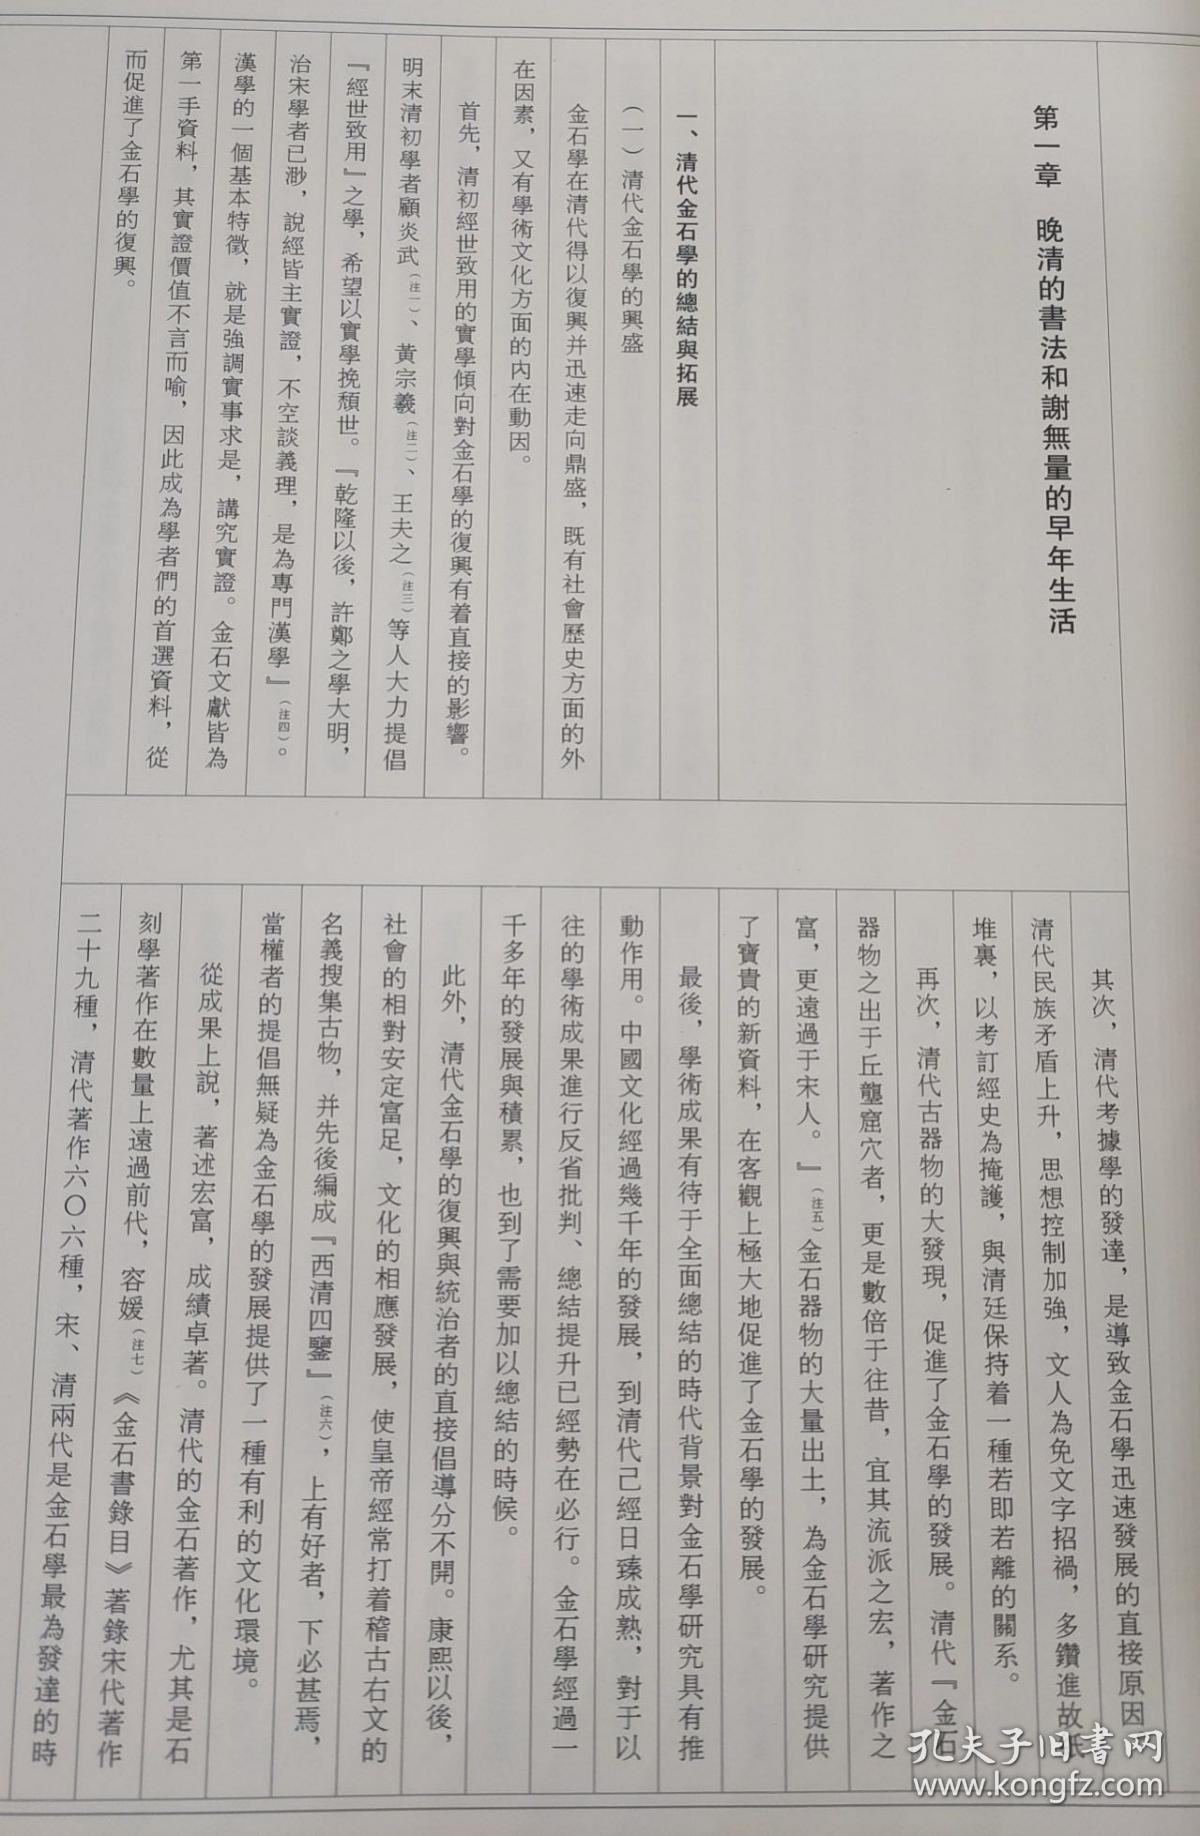 第一章　晚清的書法和謝無量的早年生活
一、清代金石學的總結與拓展
（一）清代金石學的興盛
金石學在清代得以復興并迅速走向鼎盛，既有社會歷史方面的外
在因素，又有學術文化方面的内在動因。
首先，清初經世致用的實學傾向對金石學的復興有着直接的影響。
明末清初學者顧炎武（注一）、黃宗羲（注二）、王夫之（注三）等人大力提倡
『經世致用』之學，希望以實學挽頹世。『乾隆以後，許鄭之學大明，
治宋學者已渺，說經皆主實證，不空談義理，是為專門漢學』（注四）。
漢學的一個基本特徵，就是強調實事求是，講究實證。金石文獻皆為
第一手資料，其實證價值不言而喻，因此成為學者們的首選資料，從
而促進了金石學的復興。
其次，清代考據學的發達，是導致金石學迅速發展的直接原因
清代民族矛盾上升，思想控制加強，文人為免文字招禍，多鑽進故紙
堆裏，以考訂經史為掩護，與清廷保持着一種若即若離的關系。
再次，清代古器物的大發現，促進了金石學的發展。清代『金石
器物之出于丘壟窟穴者，更是數倍于往昔，宜其流派之宏，著作之
富，更遠過于宋人。』（注五）金石器物的大量出土，為金石學研究提供
了寶貴的新資料，在客觀上極大地促進了金石學的發展。
最後，學術成果有待于全面總結的時代背景對金石學研究具有推
動作用。中國文化經過幾千年的發展，到清代己經日臻成熟，對于以
往的學術成果進行反省批判、總結提升已經勢在必行。金石學經過一
千多年的發展與積累，也到了需要加以總結的時候。
此外，清代金石學的復興與統治者的直接倡導分不開。康熙以後，
社會的相對安定富足，文化的相應發展，使皇帝經常打着稽古右文的
名義搜集古物，并先後編成『西清四鑒』（注六），上有好者，下必甚焉，
當權者的提倡無疑為金石學的發展提供了一種有利的文化環境。
從成果上說，著述宏富，成績卓著。清代的金石著作，尤其是石
刻學著作在數量上遠過前代，容媛（注七）《金石書錄目》著錄宋代著作
二十九種，清代著作六〇六種，宋、清兩代是金石學最為發達的時
孔夫子旧書网
www.kongfz.com